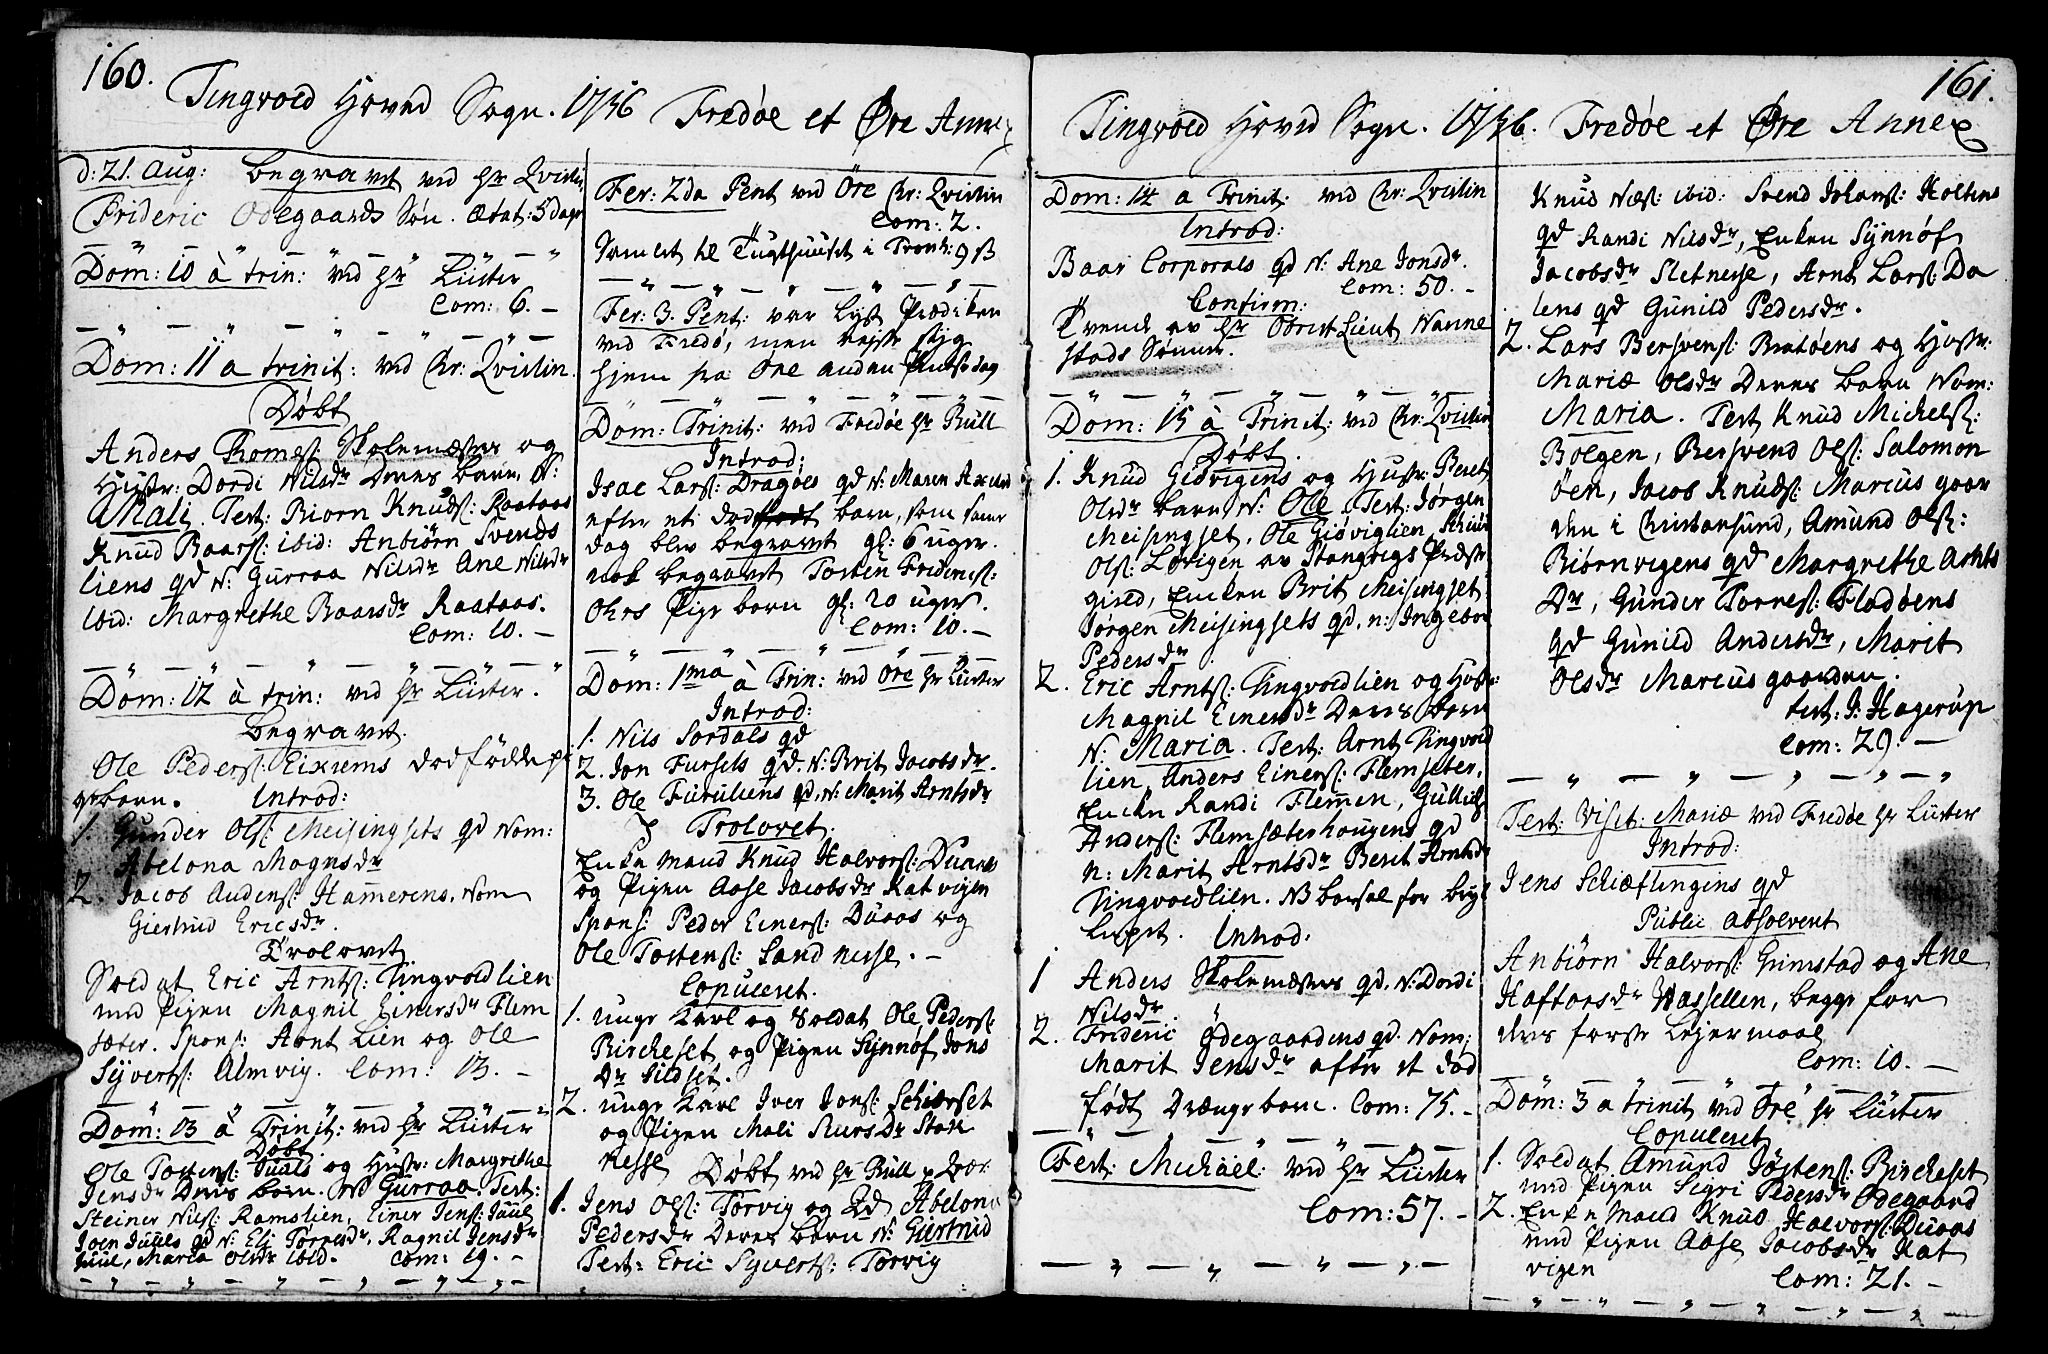 160.
Tingvold Hoved Sogn. 1746 Fredøe et Øre Annex
d: 21. Aug: begravet ved Hr Qvistin
Frideric Ødegaards Søn. Ætat: 5 dage
Dom: 10 à trin: ved Hr Lüster
Com: 6. –
Dom: 11 a trinit: ved Chr: Qvislin
Döbt
Anders Thomeſ: Skolemæster og
Hustr: Dordi Nilsdr Deres barn N:
Mali. Test: Biorn Knudſ: Raataas
Knud Baarſ: ibid: Anbiörn Svends
liens qd N: Gurraa Nilsdr Ane Nilsdr
ibid: Margrethe Baarsdr Raataas.
Com: 10. –
Dom: 12 à trin: ved Hr Lüster.
Begravet.
Ole Pederſ: Eixrems dødfödde pi
ge barn. Introd:
1. Gunder Olſ: Meisingsets qd Nom:
Abelona Mognsdr
2. Jacob Anderſ: Hamerens. Nom
Giertrud Ericsdr.
Trolovet
Soldat Eric Arntſ: Tingvoldlien
med Pigen Magnil Einersdr Flem
sæter. Sponſ: Arnt Lien og Ole
Syvertſ: Almvig. Com: 13. –
Dom: 13 à Trinit: ved Hr Lüster
Döbt
Ole Tostenſ: Juuls og Hustr: Margrethe
Jensdr Deres barn. N: Gurraa. Test:
Steiner Nilſ: Ramslien, Einer Jenſ: Juul
Joen Juuls qd N: Eli Torresdr, Ragnil Jensdr
Juul, Maria Olsdr ibid. Com: 19. –
Fer: 2da Pent ved Öre Chr: Qvislin
Com: 2.
Samlet til Tugthuuset i Tronh: 9 ß
Fer: 3. Pent: var lyst Prædiken
ved Fredö, men rejste ſtig
hjem fra Öre anden Pintsedag
Dom: Trinit: ved Fredöe Hr Bull
Introd:
Isac Larſ: Dragöes qd N: Maren
efter et dödfödt barn, som samme
dag blev begravet gl: 6 uger.
nok begravet Tosten Fridericſ:
Ohrs Pige barn gl: 20 uger.
Com: 10. –
Dom: 1ma à Trin: ved Öre Hr Lüster
Introd:
1. Nils Sordals qd
2. Jon Fursets qd. N: Brit Jacobsdr.
3. Ole Furuliens qd, N: Marit Arntsdr
Trolovet.
Enke Mand Knud Halvorſ: Duaas
og Pigen Aase Jacobsdr Katvigen
Sponſ: Peder Einerſ: Duaas og
Ole Tostenſ: Sandnesse. –
Copuleret.
1. unge Karl og Soldat Ole Pederſ:
Bircheset og Pigen Synnöf Jons
Dr Sildset.
2. unge Karl Iver Jonſ: Schiærset
og Pigen Mali SiursDr Stok
nesse Döbt ved Hr Bull
1. Jens Olſ: Torvig og Qd Abelona
Pedersdr Deres barn N: Giertrud
Test: Eric Syvertſ: Torvig
161.
Tingvold Hoved Sogn. 1746. Fredøe et Øre Annex
Dom: 14 a Trinit: ved Chr: Qvislin
Introd:
Baar Corporals qd N: Ane Jonsdr.
Com: 50. –
Confirm:
Tvende av Hr Obrist Lieut Wanne
stads Sønner.
Dom: 15 à Trinit: ved Chr: Qvislin
Döbt.
1. Knud Giövigens og Hustr: Beret
Olsdr barn N: Ole. Test: Jørgen
Meisingset, Ole Giöviglien,
Olſ: Lövigen av Stangvigs Præste
gield, Enken Brit Meisingset
Jørgen Meisingsets qd. n: Ingebor
Pedersdr
2. Eric Arntſ: Tingvoldlien og Hustr:
Magnil Einersdr Deres barn
N: Maria. Test: Arnt Tingvold
lien, Anders Einerſ: Flemseter,
Enken Randi Flemmen, Gullich
Anderſ: Flemsæterhaugens qd
n: Marit Arntsdr Beret Arntsdr
Tingvoldlien. NB barsel for bryl
luppet. Introd:
1 Anders Skolemæsters qd. N: Dordi
Nilsdr.
2. Frideric Ödegaardens qd. Nom:
Marit Jensdr after et død
født Drænge barn. Com: 75. –
Fest: Michael: ved Hr Lüster
Com: 57. –
Knud Næſ: ibid: Svend Johanſ: Holtens
qd Randi Nilsdr, Enken Synnöf
Jacobsdr Sletnesse, Arnt Larſ: Da
lens qd Gunild Pedersdr.
2. Lars Bersvenſ: Bratöens og Hustr:
Mariæ Olsdr Deres barn Nom:
Maria. Test Knud Michelſ:
Bolgen, Bersvend Olſ: Salomon
öen, Jacob Knudſ: Marcus gaar
den i Christansund, Amund Olſ:
Biörnvigens qd Margrethe Arnts
Dr, Gunder Torreſ: Fladöens
qd Gunild Andersdr, Marit
Olsdr Marcusgaarden.
test: J: Hagerup
Com: 29. –
Fest: Visit: Mariæ ved Fredöe Hr Lüster
Introd:
Jens Schiæftingens qd
Public absolvent
Anbiörn Halvorſ: Grimstad og Ane
Haftorsdr Wassellen, begge for
deres første Lejermaal
Com: 10. –
Dom: 3 a trinit ved Öre Hr Lüster
Copuleret
1. Soldat Amund Jøstenſ: Bircheset
med Pigen Sigri Pedersdr Ödegaard
2. Enke Mand Knud Halvorſ: Duaas
med Pigen Aase Jacobsdr Kat
vigen
Com: 21. –